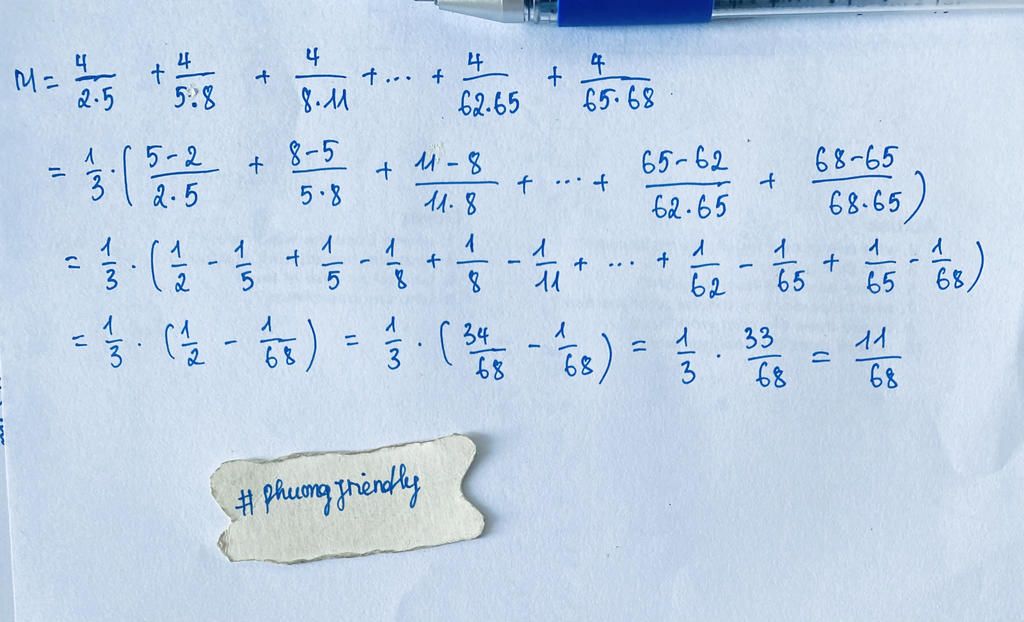 M = 4/2·5 + 4/5·8 + 4/8·11 + ... + 4/62·65 + 4/65·68
= 1/3 · ( 5-2/2·5 + 8-5/5·8 + 11-8/11·8 + ... + 65-62/62·65 + 68-65/68·65 )
= 1/3 · ( 1/2 - 1/5 + 1/5 - 1/8 + 1/8 - 1/11 + ... + 1/62 - 1/65 + 1/65 - 1/68 )
= 1/3 · ( 1/2 - 1/68 ) = 1/3 · ( 34/68 - 1/68 ) = 1/3 · 33/68 = 11/68
# phuong friendly